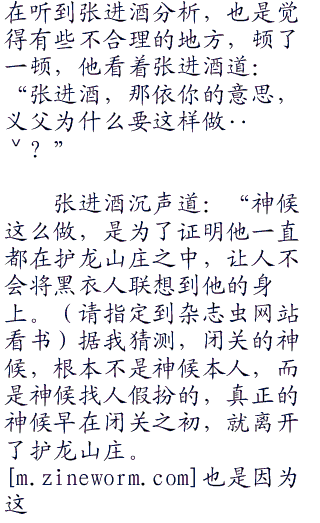 在听到张进酒分析，也是觉
得有些不合理的地方，顿了
一顿，他看着张进酒道：
“张进酒，那依你的意思，
义父为什么要这样做··
ˇ？”
张进酒沉声道：“神候
这么做，是为了证明他一直
都在护龙山庄之中，让人不
会将黑衣人联想到他的身
上。（请指定到杂志虫网站
看书）据我猜测，闭关的神
候，根本不是神候本人，而
是神候找人假扮的，真正的
神候早在闭关之初，就离开
了护龙山庄。
[m.zineworm.com]也是因为
这